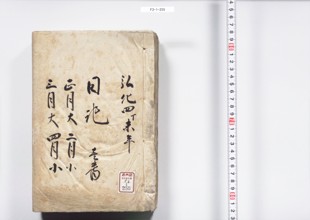 弘化四丁未年
日記
壱番
正月大 二月小
三月大 四月小